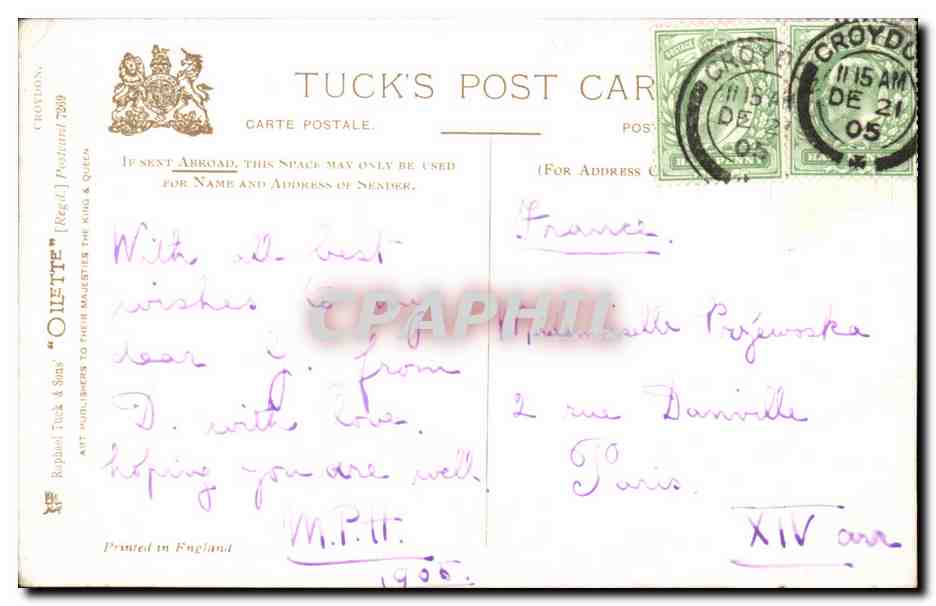 CROYDON.
Raphael Tuck & Sons' "OILETTE" [Regd.] Postcard 7269
ART PUBLISHERS TO THEIR MAJESTIES THE KING & QUEEN
TUCK'S POST CAR
CARTE POSTALE.
POST
IF SENT ABROAD, THIS SPACE MAY ONLY BE USED
FOR NAME AND ADDRESS OF SENDER.
(FOR ADDRESS O
POSTAGE
HALFPENNY
CROYDON
11 15 AM
DE 21
05
CROYDO
11 15 AM
DE 21
05
With all best
wishes to my
dear J. from
D. with love,
hoping you are well
M.P.H.
1905.
France.
Mademoiselle
2 rue Danville
Paris.
XIV arr
Printed in England
CPAPHIL